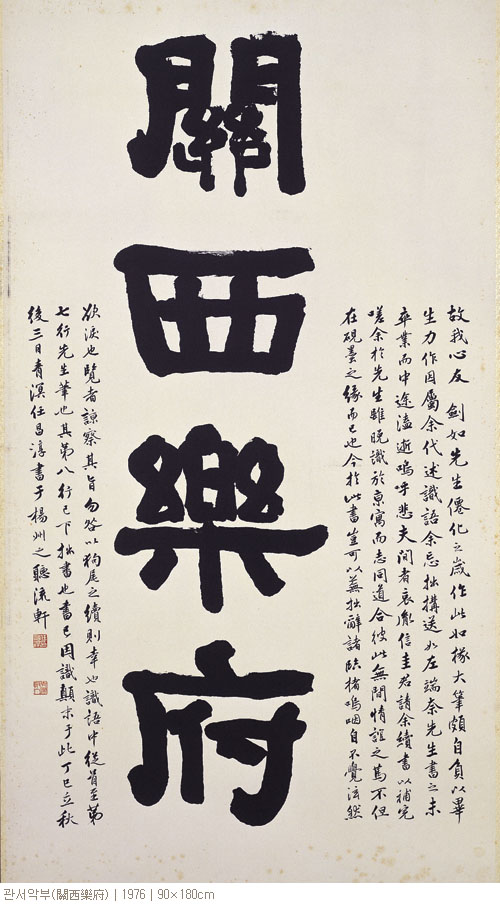 故我心友 劍如先生僊化之歲作此如椽大筆頗自負以畢
生力作因屬余代述識語余忘拙搆送如左端奈先生書之未
卒業而中途溘逝嗚乎悲夫間者哀胤信圭君請余續書以補完
嗟余於先生雖晚識於京寓而志同道合彼此無間情誼之篤不但
在硯墨之緣而已也今於此書豈可以蕪拙辭諸臨楮嗚咽自不覺泫然
關西樂府
欲淚也覽者諒察其旨勿咎以狗尾之續則幸也識語中從首至第
七行先生筆也其第八行已下拙書也書已因識顛末于此丁巳立秋
後三日青溟任昌淳書于楊州之聽流軒
관서악부(關西樂府) | 1976 | 90×180cm